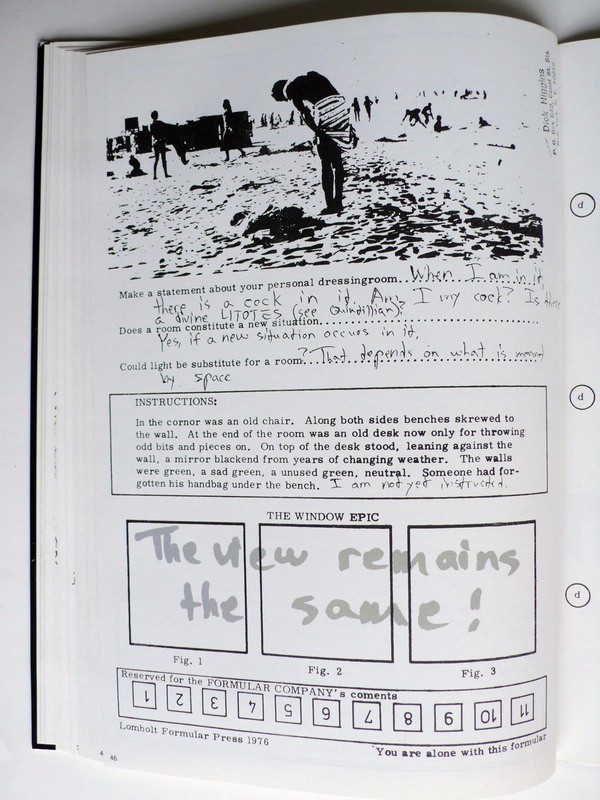 Dick Higgins
Make a statement about your personal dressingroom..When I am in it,
there is a cock in it. Am I my cock? Is there
a divine LITOTES (see Quintillian)?
Does a room constitute a new situation..............................
Yes, if a new situation occurs in it.
Could light be substitute for a room?That depends on what is meant
by space
INSTRUCTIONS:
In the cornor was an old chair. Along both sides benches skrewed to
the wall. At the end of the room was an old desk now only for throwing
odd bits and pieces on. On top of the desk stood, leaning against the
wall, a mirror blackend from years of changing weather. The walls
were green, a sad green, a unused green, neutral. Someone had for-
gotten his handbag under the bench. I am not yet instructed.
THE WINDOW EPIC
The view remains
the same!
Fig. 1 Fig. 2 Fig. 3
Reserved for the FORMULAR COMPANY's coments
1 2 3 4 5 6 7 8 9 10 11
Lomholt Formular Press 1976
You are alone with this formular
4 46
d
d
d